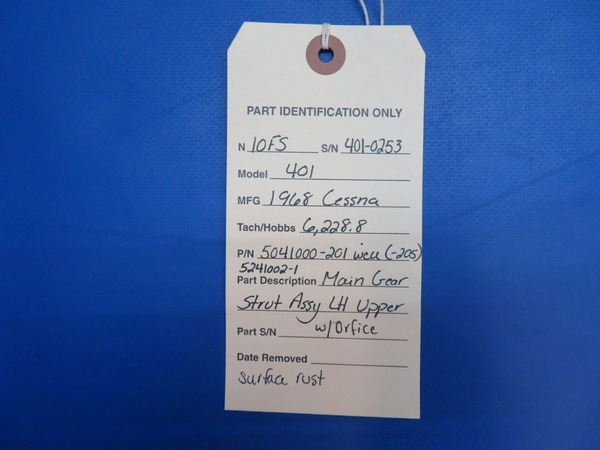 PART IDENTIFICATION ONLY
N 10FS S/N 401-0253
Model 401
MFG 1968 Cessna
Tach/Hobbs 6,228.8
P/N 5041000-201 (-205)
5241002-1
Part Description Main Gear
Strut Assy LH Upper
Part S/N w/Orfice
Date Removed
surface rust